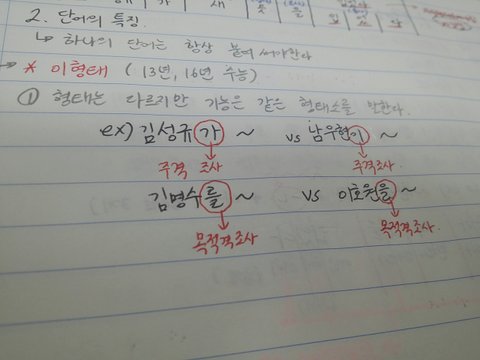 2. 단어의 특징.
↳ 하나의 단어는 항상 붙여 써야한다
→ * 이형태 ( 13년, 16년 수능 )
① 형태는 다르지만 기능은 같은 형태소를 말한다.
ex) 김성규가 ~ vs 남우현이 ~
주격 조사 주격조사.
김명수를 ~ vs 이호원을 ~
목적격조사 목적격조사.